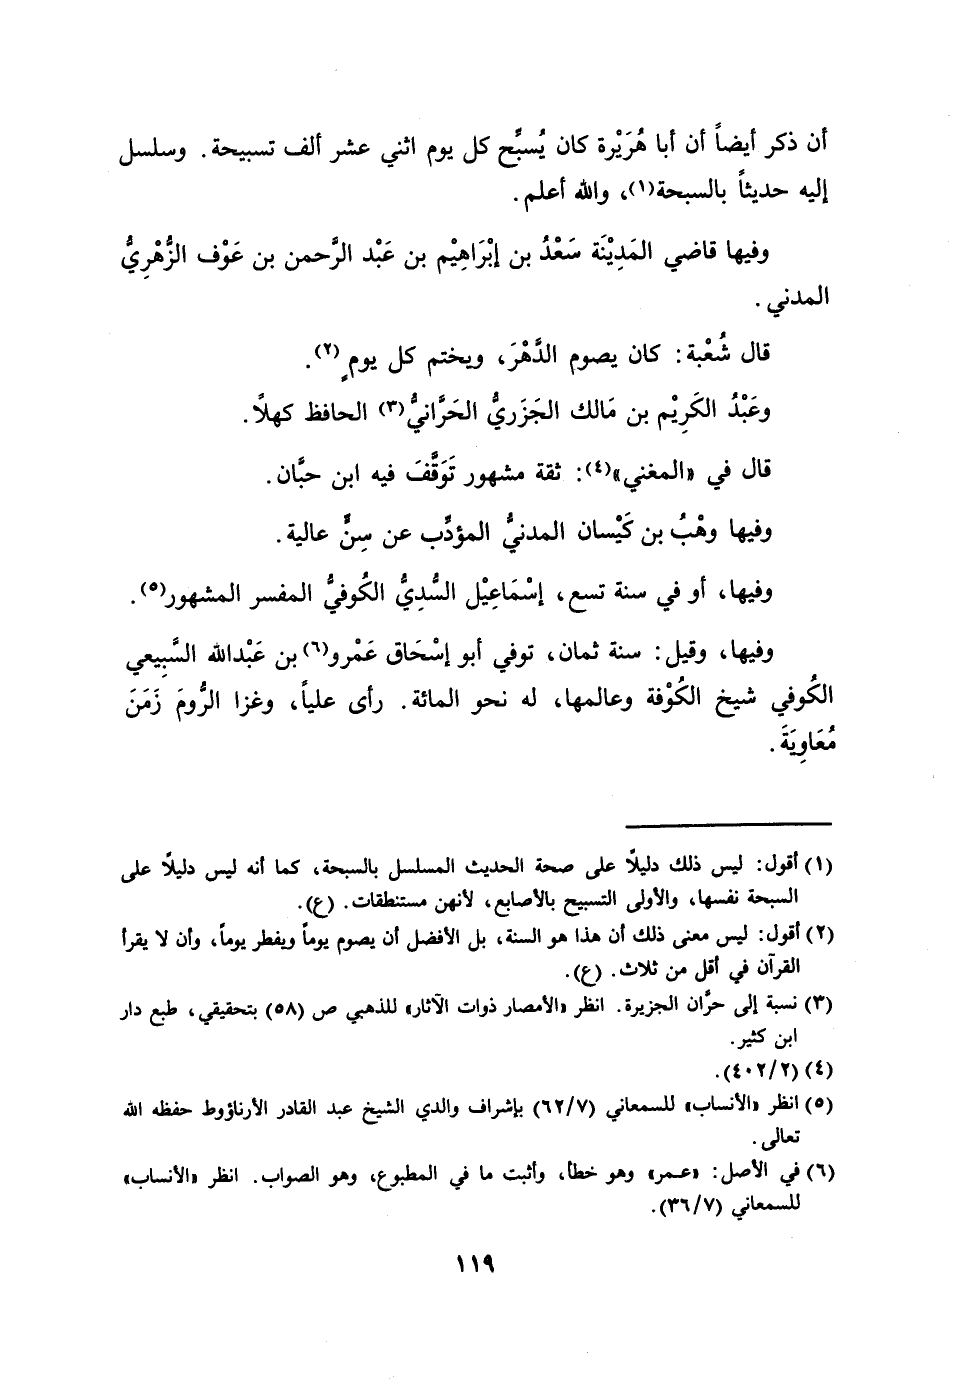 أن ذكر أيضاً أن أبا هُرَيْرة كان يُسبِّح كل يوم اثني عشر ألف تسبيحة. وسلسل
إليه حديثاً بالسبحة(١)، والله أعلم.
وفيها قاضي المَدِيْنَة سَعْدُ بن إبْرَاهِيْم بن عَبْد الرَّحمن بن عَوْف الزُّهْرِيُّ
المدني.
قال شُعْبة: كان يصوم الدَّهْرَ، ويختم كل يومٍ(٢).
وعَبْدُ الكَرِيْم بن مَالك الجَزَريُّ الحَرَّانيُّ(٣) الحافظ كهلًا.
قال في «المغني»(٤): ثقة مشهور تَوَقَّفَ فيه ابن حبَّان.
وفيها وهْبُ بن كَيْسان المدنيُّ المؤدِّب عن سِنٍّ عالية.
وفيها، أو في سنة تسع، إسْمَاعِيْل السُّدِيُّ الكُوفيُّ المفسر المشهور(٥).
وفيها، وقيل: سنة ثمان، توفي أبو إسْحَاق عَمْرو(٦) بن عَبْدالله السَّبِيعي
الكُوفي شيخ الكُوْفة وعالمها، له نحو المائة. رأى علياً، وغزا الرُّومَ زَمَنَ
مُعَاوِيَةَ.
(١) أقول: ليس ذلك دليلًا على صحة الحديث المسلسل بالسبحة، كما أنه ليس دليلًا على
السبحة نفسها، والأولى التسبيح بالأصابع، لأنهن مستنطقات. (ع).
(٢) أقول: ليس معنى ذلك أن هذا هو السنة، بل الأفضل أن يصوم يوماً ويفطر يوماً، وأن لا يقرأ
القرآن في أقل من ثلاث. (ع).
(٣) نسبة إلى حرَّان الجزيرة. انظر «الأمصار ذوات الآثار» للذهبي ص (٥٨) بتحقيقي، طبع دار
ابن كثير.
(٤) (٤٠٢/٢).
(٥) انظر «الأنساب» للسمعاني (٦٢/٧) بإشراف والدي الشيخ عبد القادر الأرناؤوط حفظه الله
تعالى.
(٦) في الأصل: «عمر» وهو خطأ، وأثبت ما في المطبوع، وهو الصواب. انظر «الأنساب»
للسمعاني (٣٦/٧).
١١٩